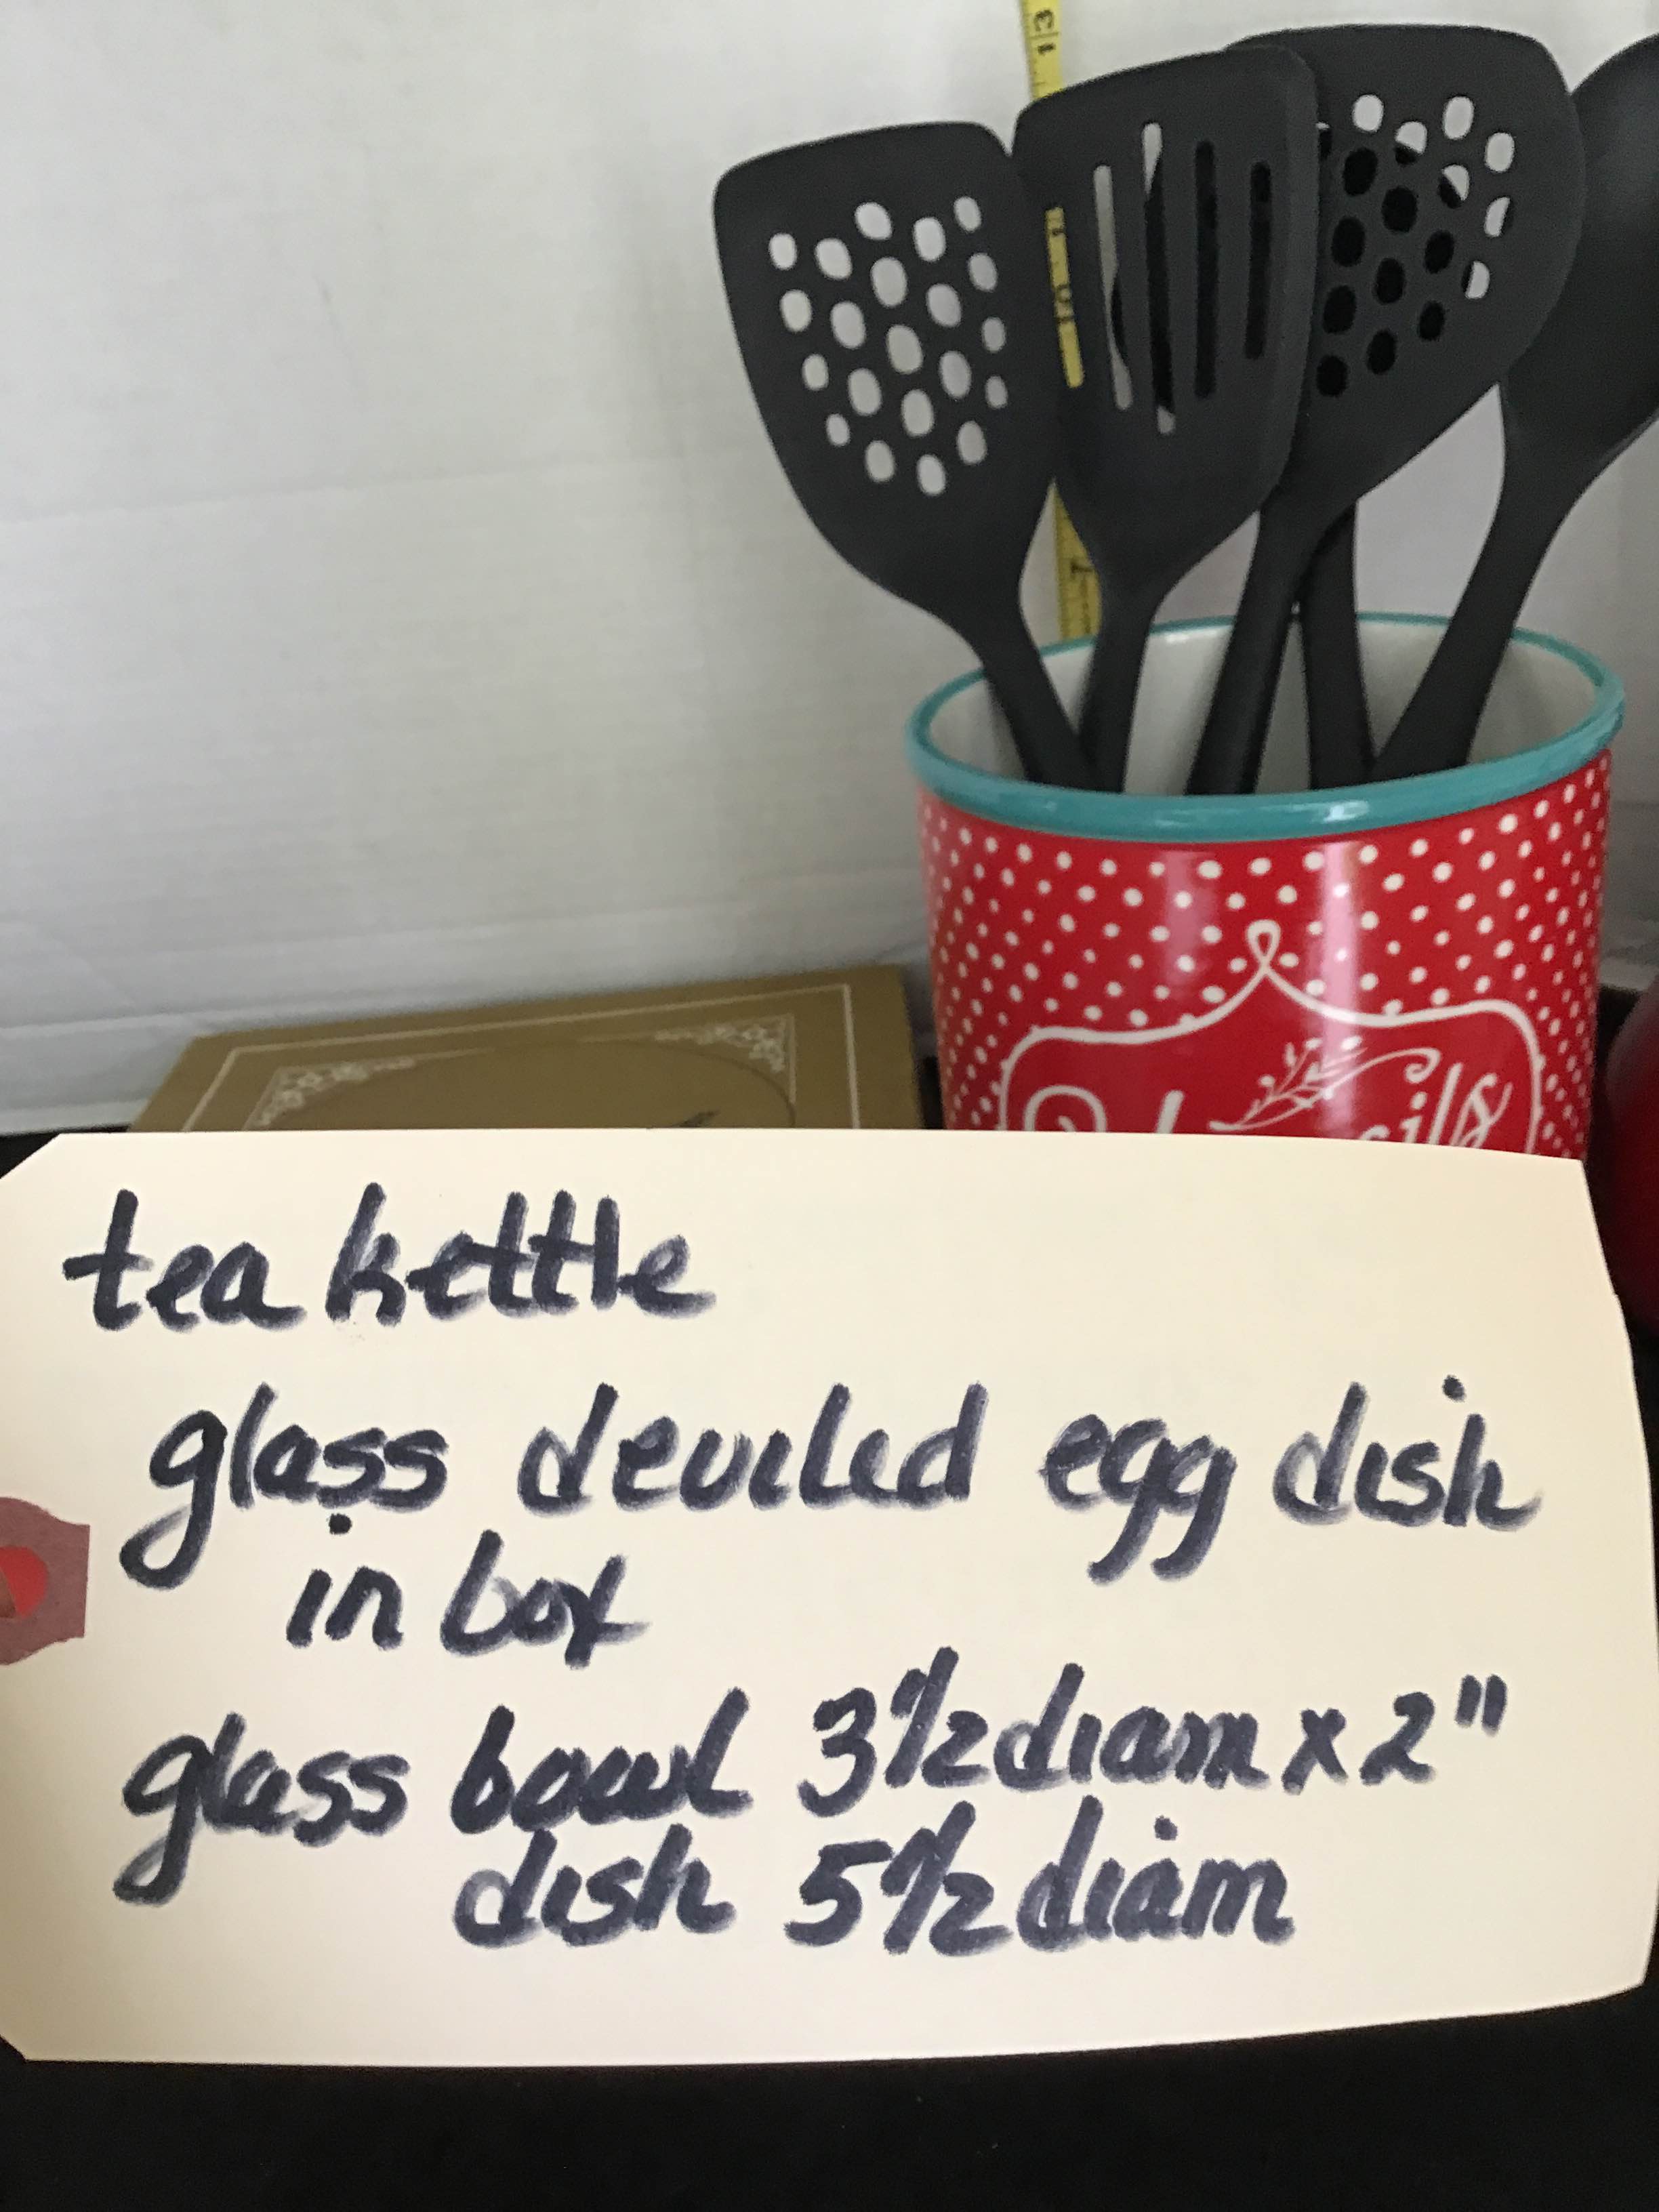 13
10
7
Utensils
tea kettle
glass deviled egg dish
in box
glass bowl 3 1/2 diam x 2"
dish 5 1/2 diam